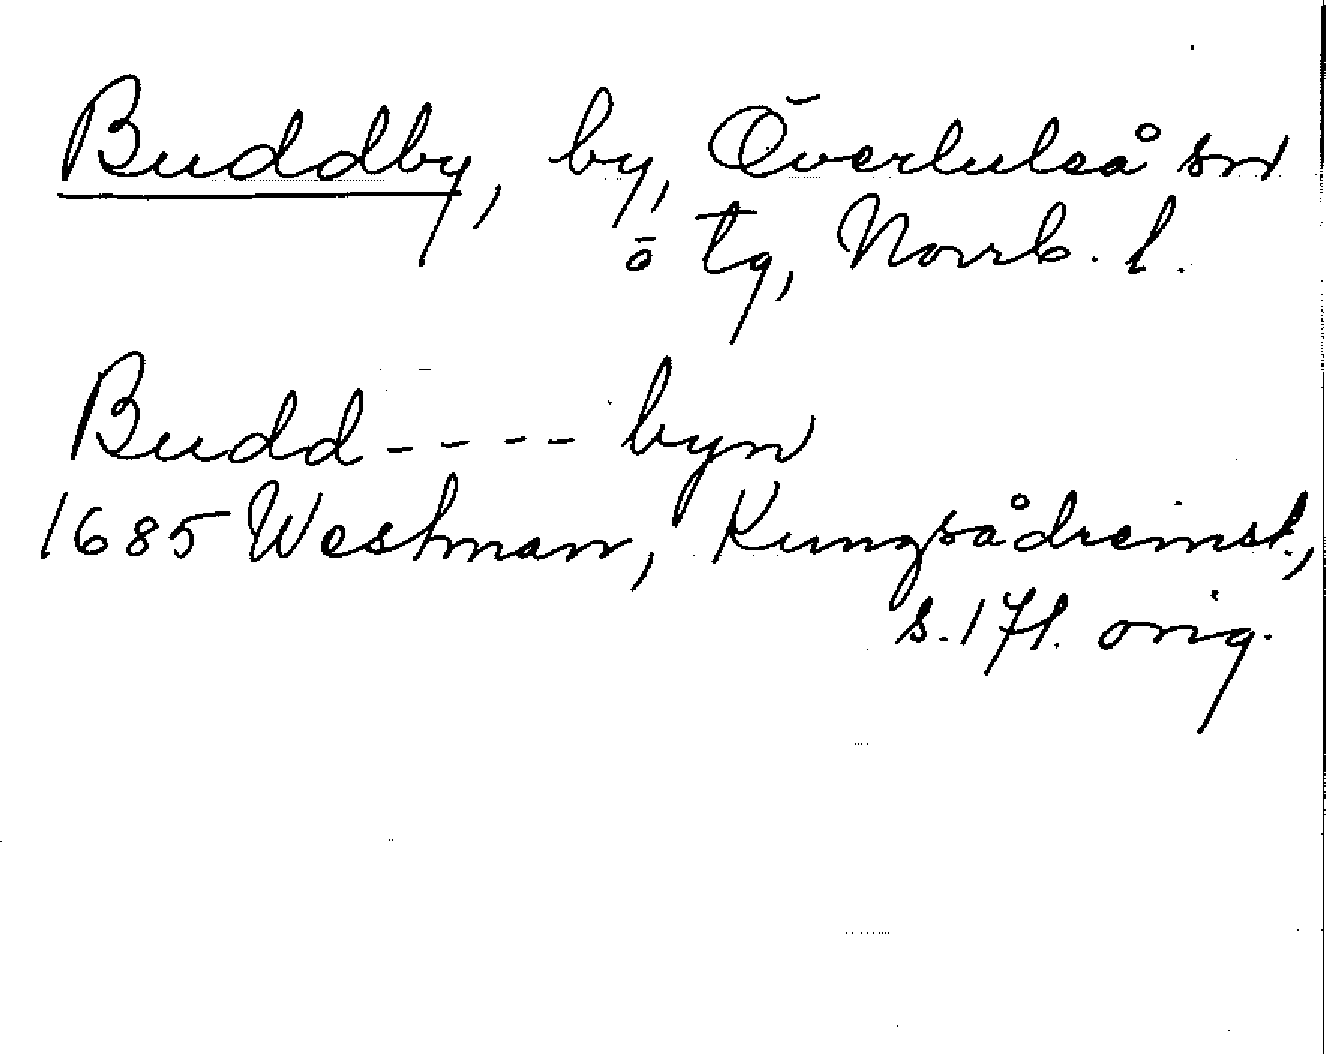 Buddby, by, Överluleå sn
ö tg, Norrb. l.
Budd---- byn
1685 Westman, Kungsådreinst.,
s. 17f. orig.